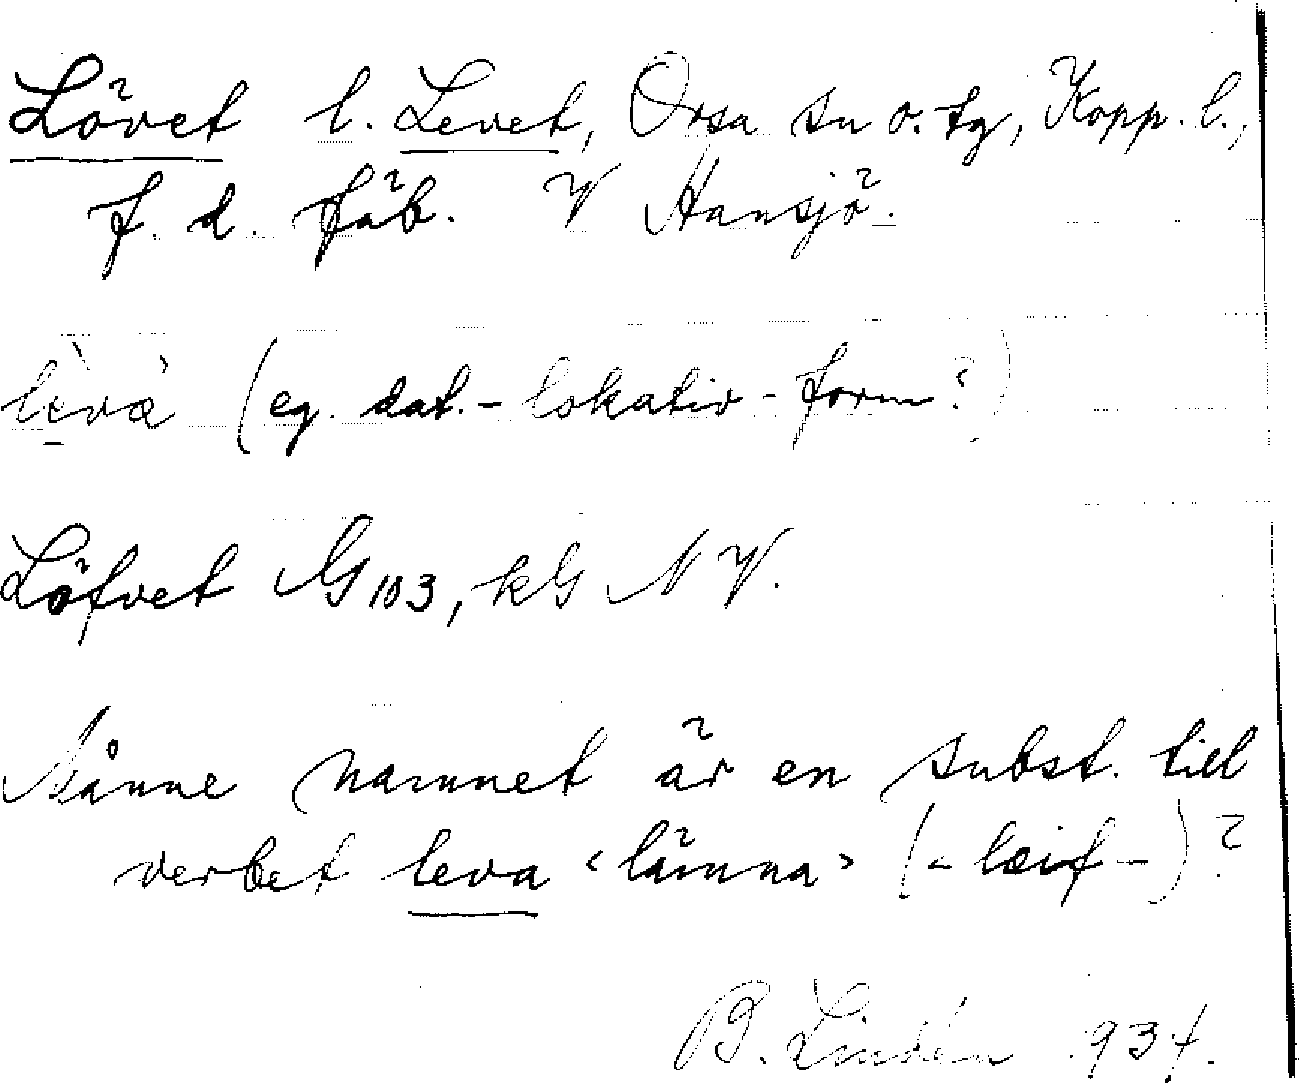 Lövet l. Levet, Orsa sn o. tg, Kopp. l.,
f. d. fäb. V Hansjö.
lèvà (eg. dat.-lokativ-form?)
Löfvet G 103, kG NV.
Månne namnet är en subst. till
verbet leva ‹lämna› (-leif-)?
B. Lindén 1934.